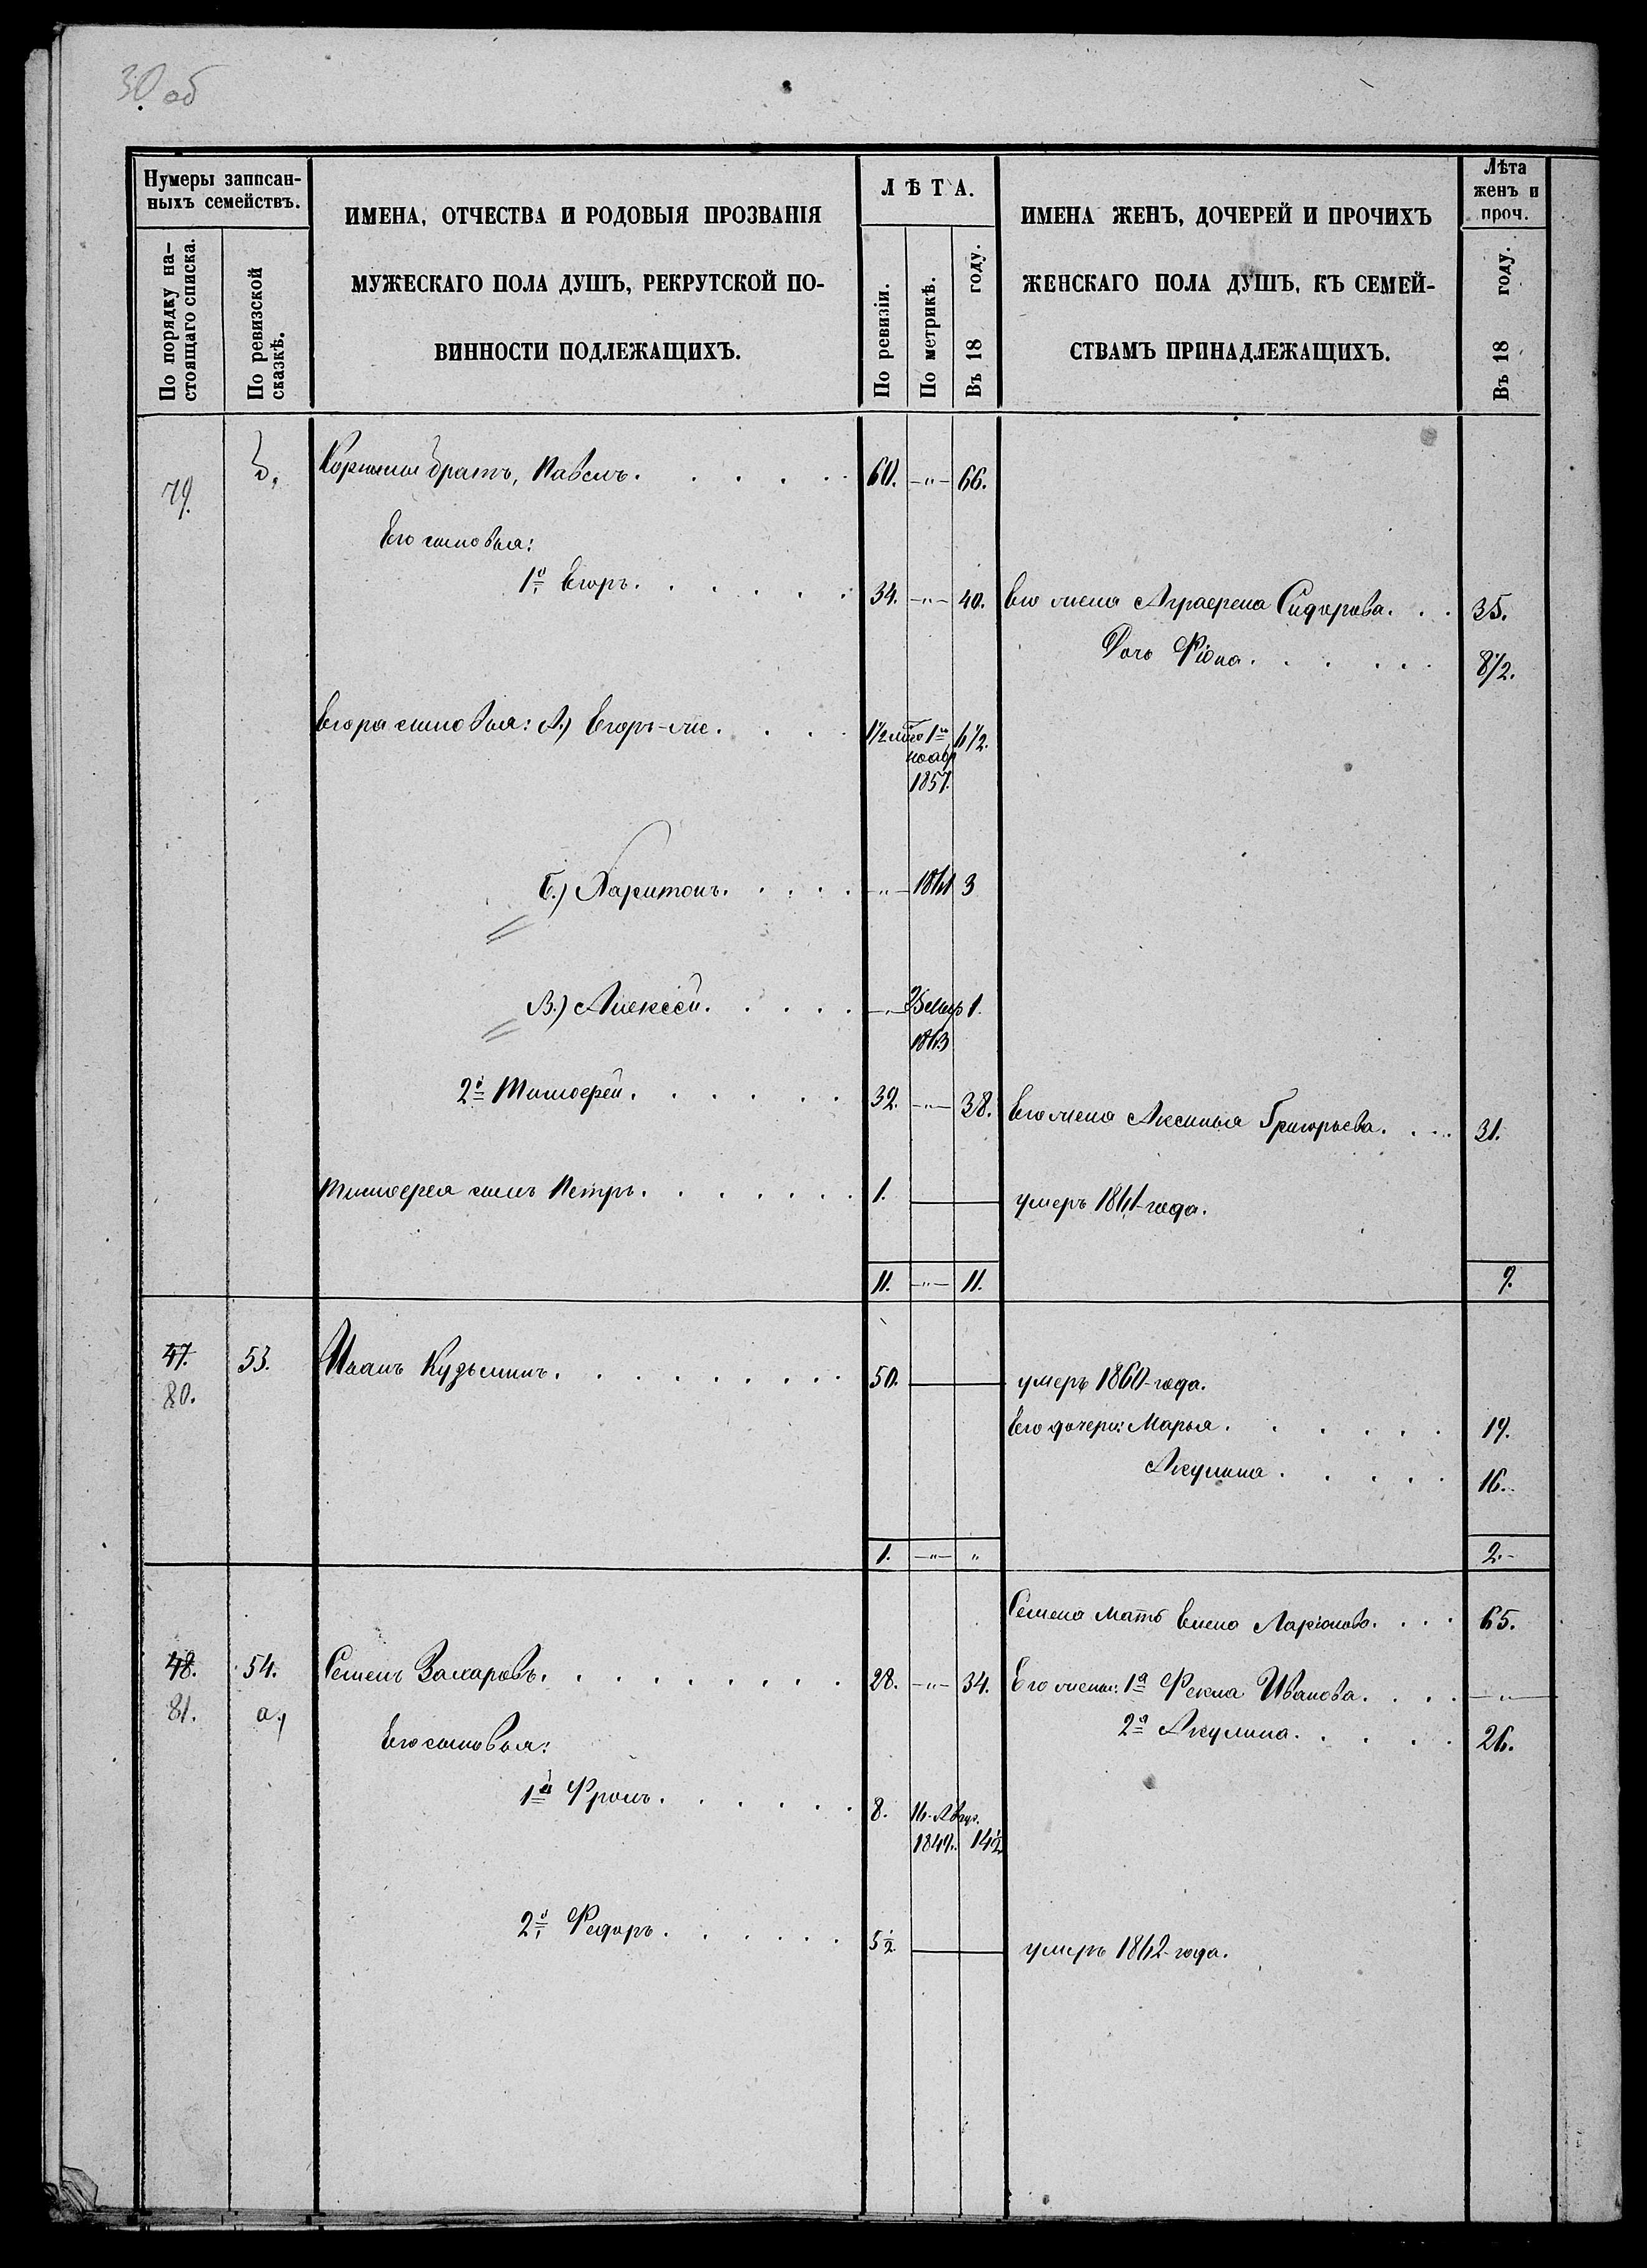 30 об
Нумеры записан-
ныхъ семействъ.
По порядку на-
стоящаго списка.
По ревизской
сказкѣ.
ИМЕНА, ОТЧЕСТВА И РОДОВЫЯ ПРОЗВАНІЯ
МУЖЕСКАГО ПОЛА ДУШЪ, РЕКРУТСКОЙ ПО-
ВИННОСТИ ПОДЛЕЖАЩИХЪ.
ЛѢТА.
По ревизіи.
По метрикѣ.
Въ 18 году.
ИМЕНА ЖЕНЪ, ДОЧЕРЕЙ И ПРОЧИХЪ
ЖЕНСКАГО ПОЛА ДУШЪ, КЪ СЕМЕЙ-
СТВАМЪ ПРИНАДЛЕЖАЩИХЪ.
Лѣта
женъ и
проч.
Въ 18 году.
79. братъ, Павелъ. 60. -"- 66.
Его сыновья:
1й Егоръ. 34. -"- 40. Его жена Аграфена Сидорова. 35.
Дочь 8½.
Егора сыновья: А.) Егоръ-же. 1½ 1го 6½.
ноябр
1857.
Б.) Харитонъ. " 1861 3
В.) Алексѣй. -"- 1.
1863
2й Тимофей. 32. -"- 38. Его жена Аксинья Григорьева. 31.
Тимофея сынъ Петръ. 1. умеръ 1861 года.
11. -"- 11. 9.
47. 53. Иванъ Кузьминъ. 50. умеръ 1860 года.
80.
Его дочери: Марья. 19.
Акулина. 16.
1. -"- " 2.-
Семена мать Елена Ларіонова. 65.
48. 54. Семенъ Захаровъ. 28. -"- 34. Его жены: 1я Фекла Иванова. -"-
81. а.)
2я Акулина. 26.
Его сыновья:
1й Фролъ. 8. 16. Авгус.
1849. 14½
2й Федоръ. 5½. умеръ 1862 года.